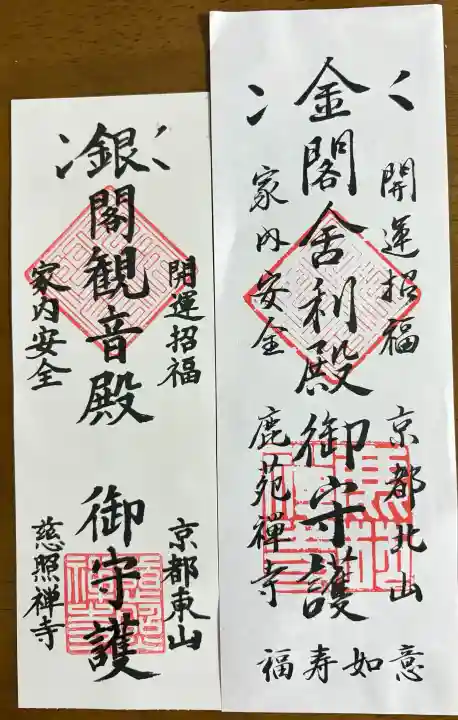 銀閣観音殿 御守護
開運招福
家内安全
京都東山
慈照禅寺
金閣舎利殿 御守護
開運招福
家内安全
京都北山
鹿苑禅寺
福寿如意